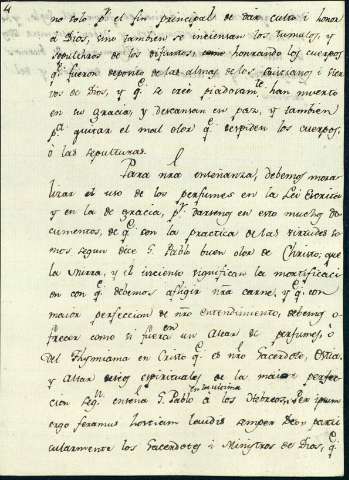 4
no solo pr. el fin principal de dar culto i honor
á Dios, sino tambien se inciensan los tumulos, y
sepulcros de los difuntos, como honrando los cuerpos
qe. fueron deposito de las almas de los fieles i Sier
vos de Dios, y qe. se cree piadosamte. han muerto
en su gracia, y descansan en paz, y tambien
pa. quitar el mal olor qe. despiden los cuerpos,
ó las sepulturas.
Para nra enseñanza, debemos mora-
lizar el uso de los perfumes en la Lei Escrita
y en la de gracia, pr. darsenos en esto mucho do-
cumentos, de qe. con la practica de las virtudes so-
mos segun dice S. Pablo buen olor de Christo, que
la Mirra, y el incienso significan la mortificaci-
on con qe. debemos afligir nra carne, y qe. con
maior perfeccion de nro entendimiento, debemos o-
frecer como si fuera en un Altar de perfumes, ó
del Thymiama en Cristo qe. es nro Sacerdote, Ostia,
y Altar espirituales de la maior perfec-
cion segn. enseña S. Pablo en la ultima á los Hebreos, Per ipsum
ergo feramus hostiam laudis semper Deo parti-
cularmente los Sacerdotes i Ministros de Dios, qe.